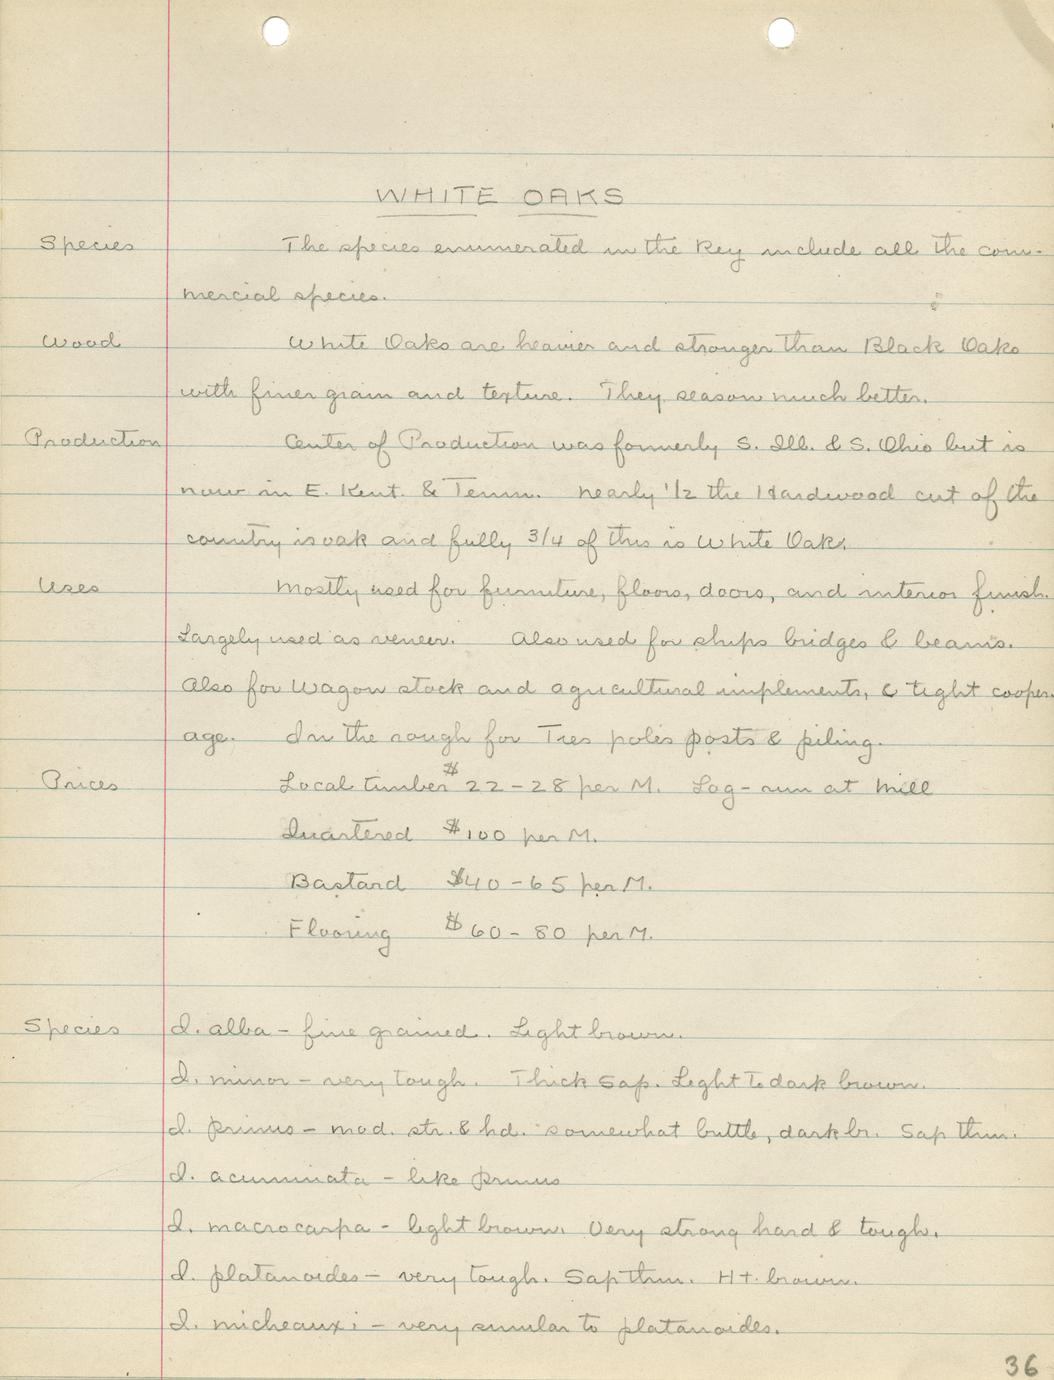 WHITE OAKS
Species The species enumerated in the Key include all the com-
mercial species.
Wood White Oaks are heavier and stronger than Black Oaks
with finer grain and texture. They season much better.
Production Center of Production was formerly S. Ill. & S. Ohio but is
now in E. Kent. & Tenn. Nearly 1/2 the Hardwood cut of the
country is oak and fully 3/4 of this is White Oak.
Uses Mostly used for furniture, floors, doors, and interior finish.
Largely used as veneer. Also used for ships bridges & beams.
Also for Wagon stock and agricultural implements, & tight cooper-
age. In the rough for Ties poles posts & piling.
Prices Local timber $22-28 per M. Log-run at Mill
Quartered $100 per M.
Bastard $40-65 per M.
Flooring $60-80 per M.
Species Q. alba - fine grained. Light brown.
Q. minor - very tough. Thick Sap. Light to dark brown.
Q. prinus - mod. str. & hd. somewhat brittle, dark br. Sap thin.
Q. acuminata - like prinus
Q. macrocarpa - light brown. Very strong hard & tough.
Q. platanoides - very tough. Sap thin. Ht. brown.
Q. micheauxi - very similar to platanoides.
36